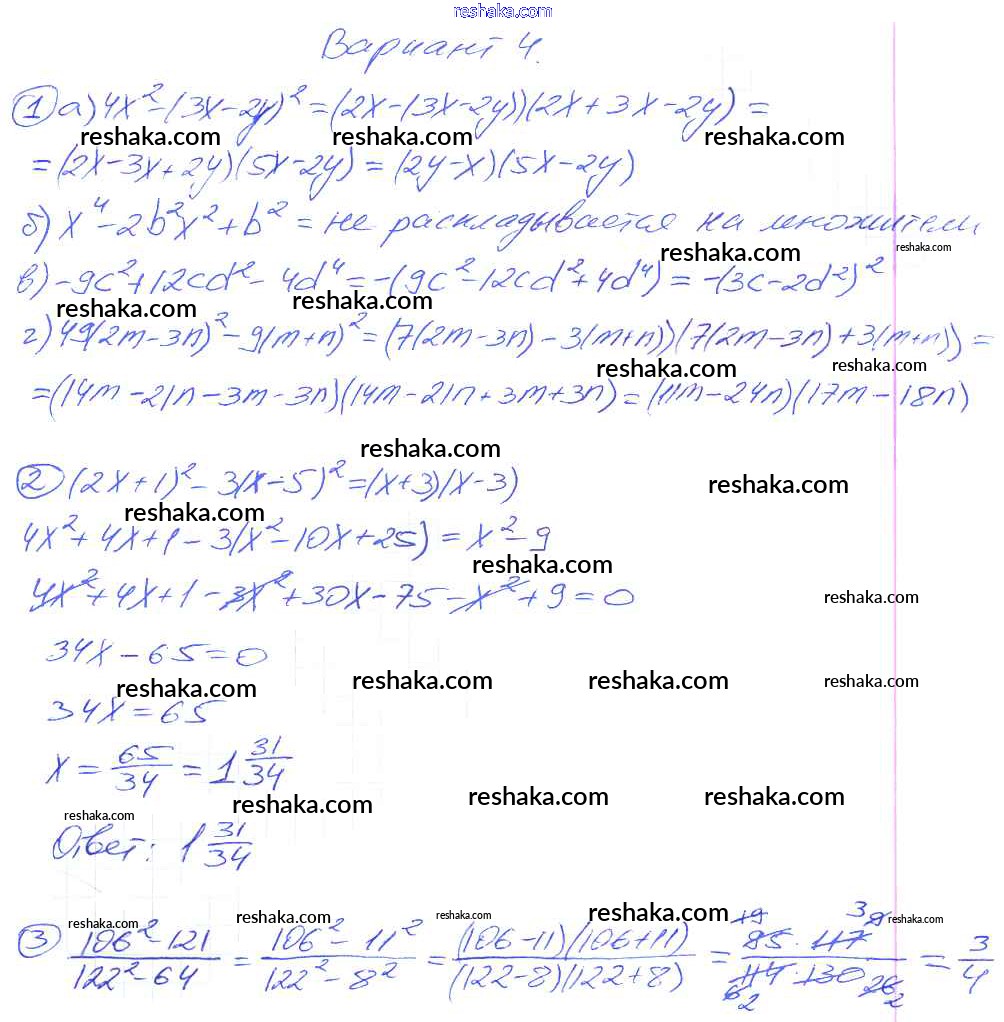 reshaka.com
Вариант 4.
① а) 4x² - (3x - 2y)² = (2x - (3x - 2y))(2x + 3x - 2y) =
reshaka.com reshaka.com reshaka.com
= (2x - 3x + 2y)(5x - 2y) = (2y - x)(5x - 2y)
б) x⁴ - 2b²x² + b² = не раскладывается на множители
reshaka.com reshaka.com
в) -9c² + 12cd² - 4d⁴ = -(9c² - 12cd² + 4d⁴) = -(3c - 2d²)²
reshaka.com reshaka.com
г) 49(2m - 3n)² - 9(m + n)² = (7(2m - 3n) - 3(m + n))(7(2m - 3n) + 3(m + n)) =
reshaka.com reshaka.com
= (14m - 21n - 3m - 3n)(14m - 21n + 3m + 3n) = (11m - 24n)(17m - 18n)
reshaka.com
② (2x + 1)² - 3(x - 5)² = (x + 3)(x - 3)
reshaka.com reshaka.com
4x² + 4x + 1 - 3(x² - 10x + 25) = x² - 9
reshaka.com
4x² + 4x + 1 - 3x² + 30x - 75 - x² + 9 = 0
reshaka.com
34x - 65 = 0
reshaka.com reshaka.com reshaka.com reshaka.com
34x = 65
x = 65/34 = 1 31/34
reshaka.com reshaka.com reshaka.com
reshaka.com
Ответ: 1 31/34
reshaka.com reshaka.com reshaka.com reshaka.com reshaka.com
③ (106² - 121)/(122² - 64) = (106² - 11²)/(122² - 8²) = ((106 - 11)(106 + 11))/((122 - 8)(122 + 8)) = (85 · 117)/(114 · 130) = 3/4